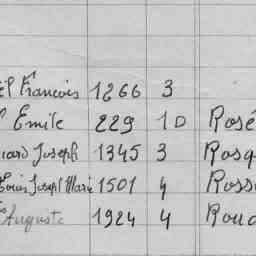 François 1266 3
Emile 229 10 Rosé
Joseph 1345 3 Rosq
Louis Joseph Marie 1501 4 Ross
Auguste 1924 4 Roud